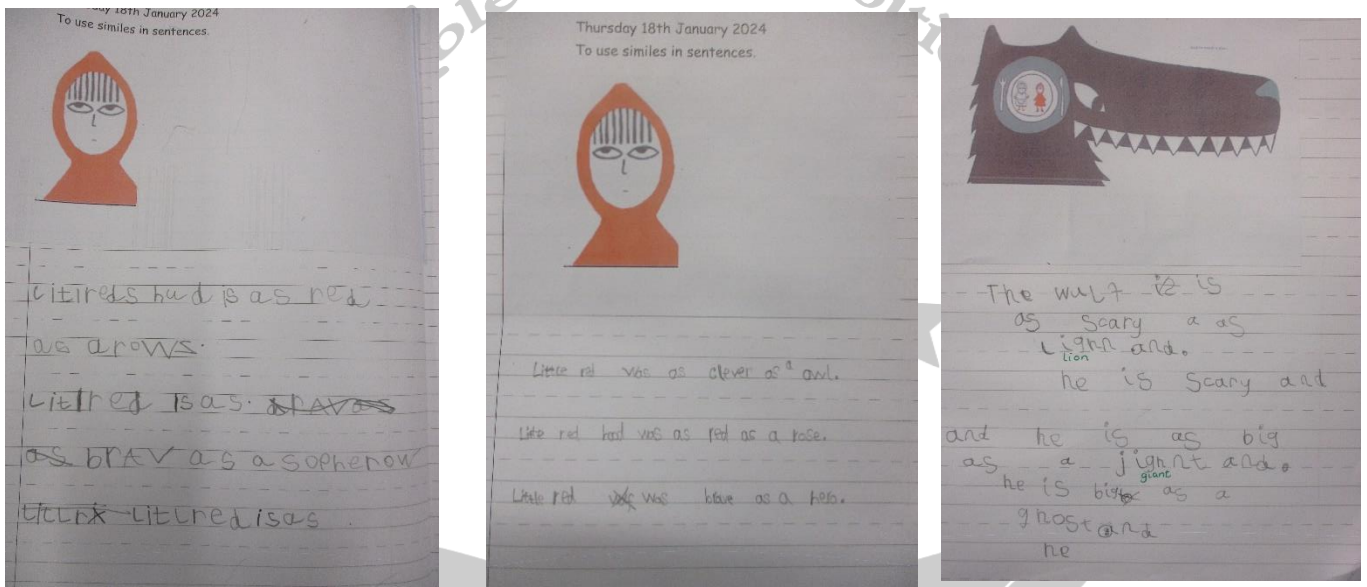 18th January 2024
To use similes in sentences.
Litireds hud is as red
as arows.
Litlred is as.
as brav as a sopherow
Litlred is as
Thursday 18th January 2024
To use similes in sentences.
Little red was as clever as a owl.
Little red hod was as red as a rose.
Little red was brave as a hero.
The wulf is
as scary a as
Lignn and.
lion
he is scary and
and he is as big
as a jignnt and.
giant
he is big as a
ghost and
he